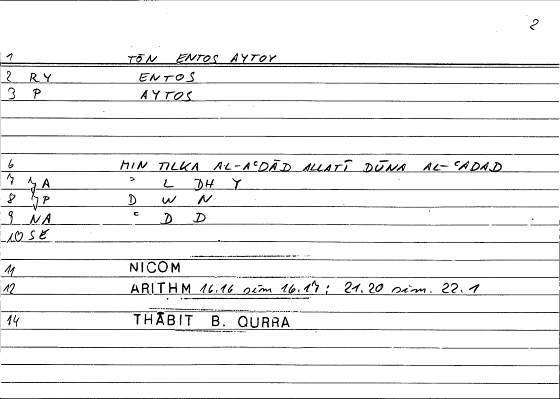 2
1 TŌN ENTOS AYTOY
2 RY ENTOS
3 P AYTOS
6 MIN TILKA AL-AᶜDĀD ALLATĪ DŪNA AL-ᶜADAD
7 A ʾ L DH Y
8 P D W N
9 NA ᶜ D D
10 SE
11 NICOM
12 ARITHM 16.16 sim 16.17; 21.20 sim. 22.1
14 THĀBIT B. QURRA